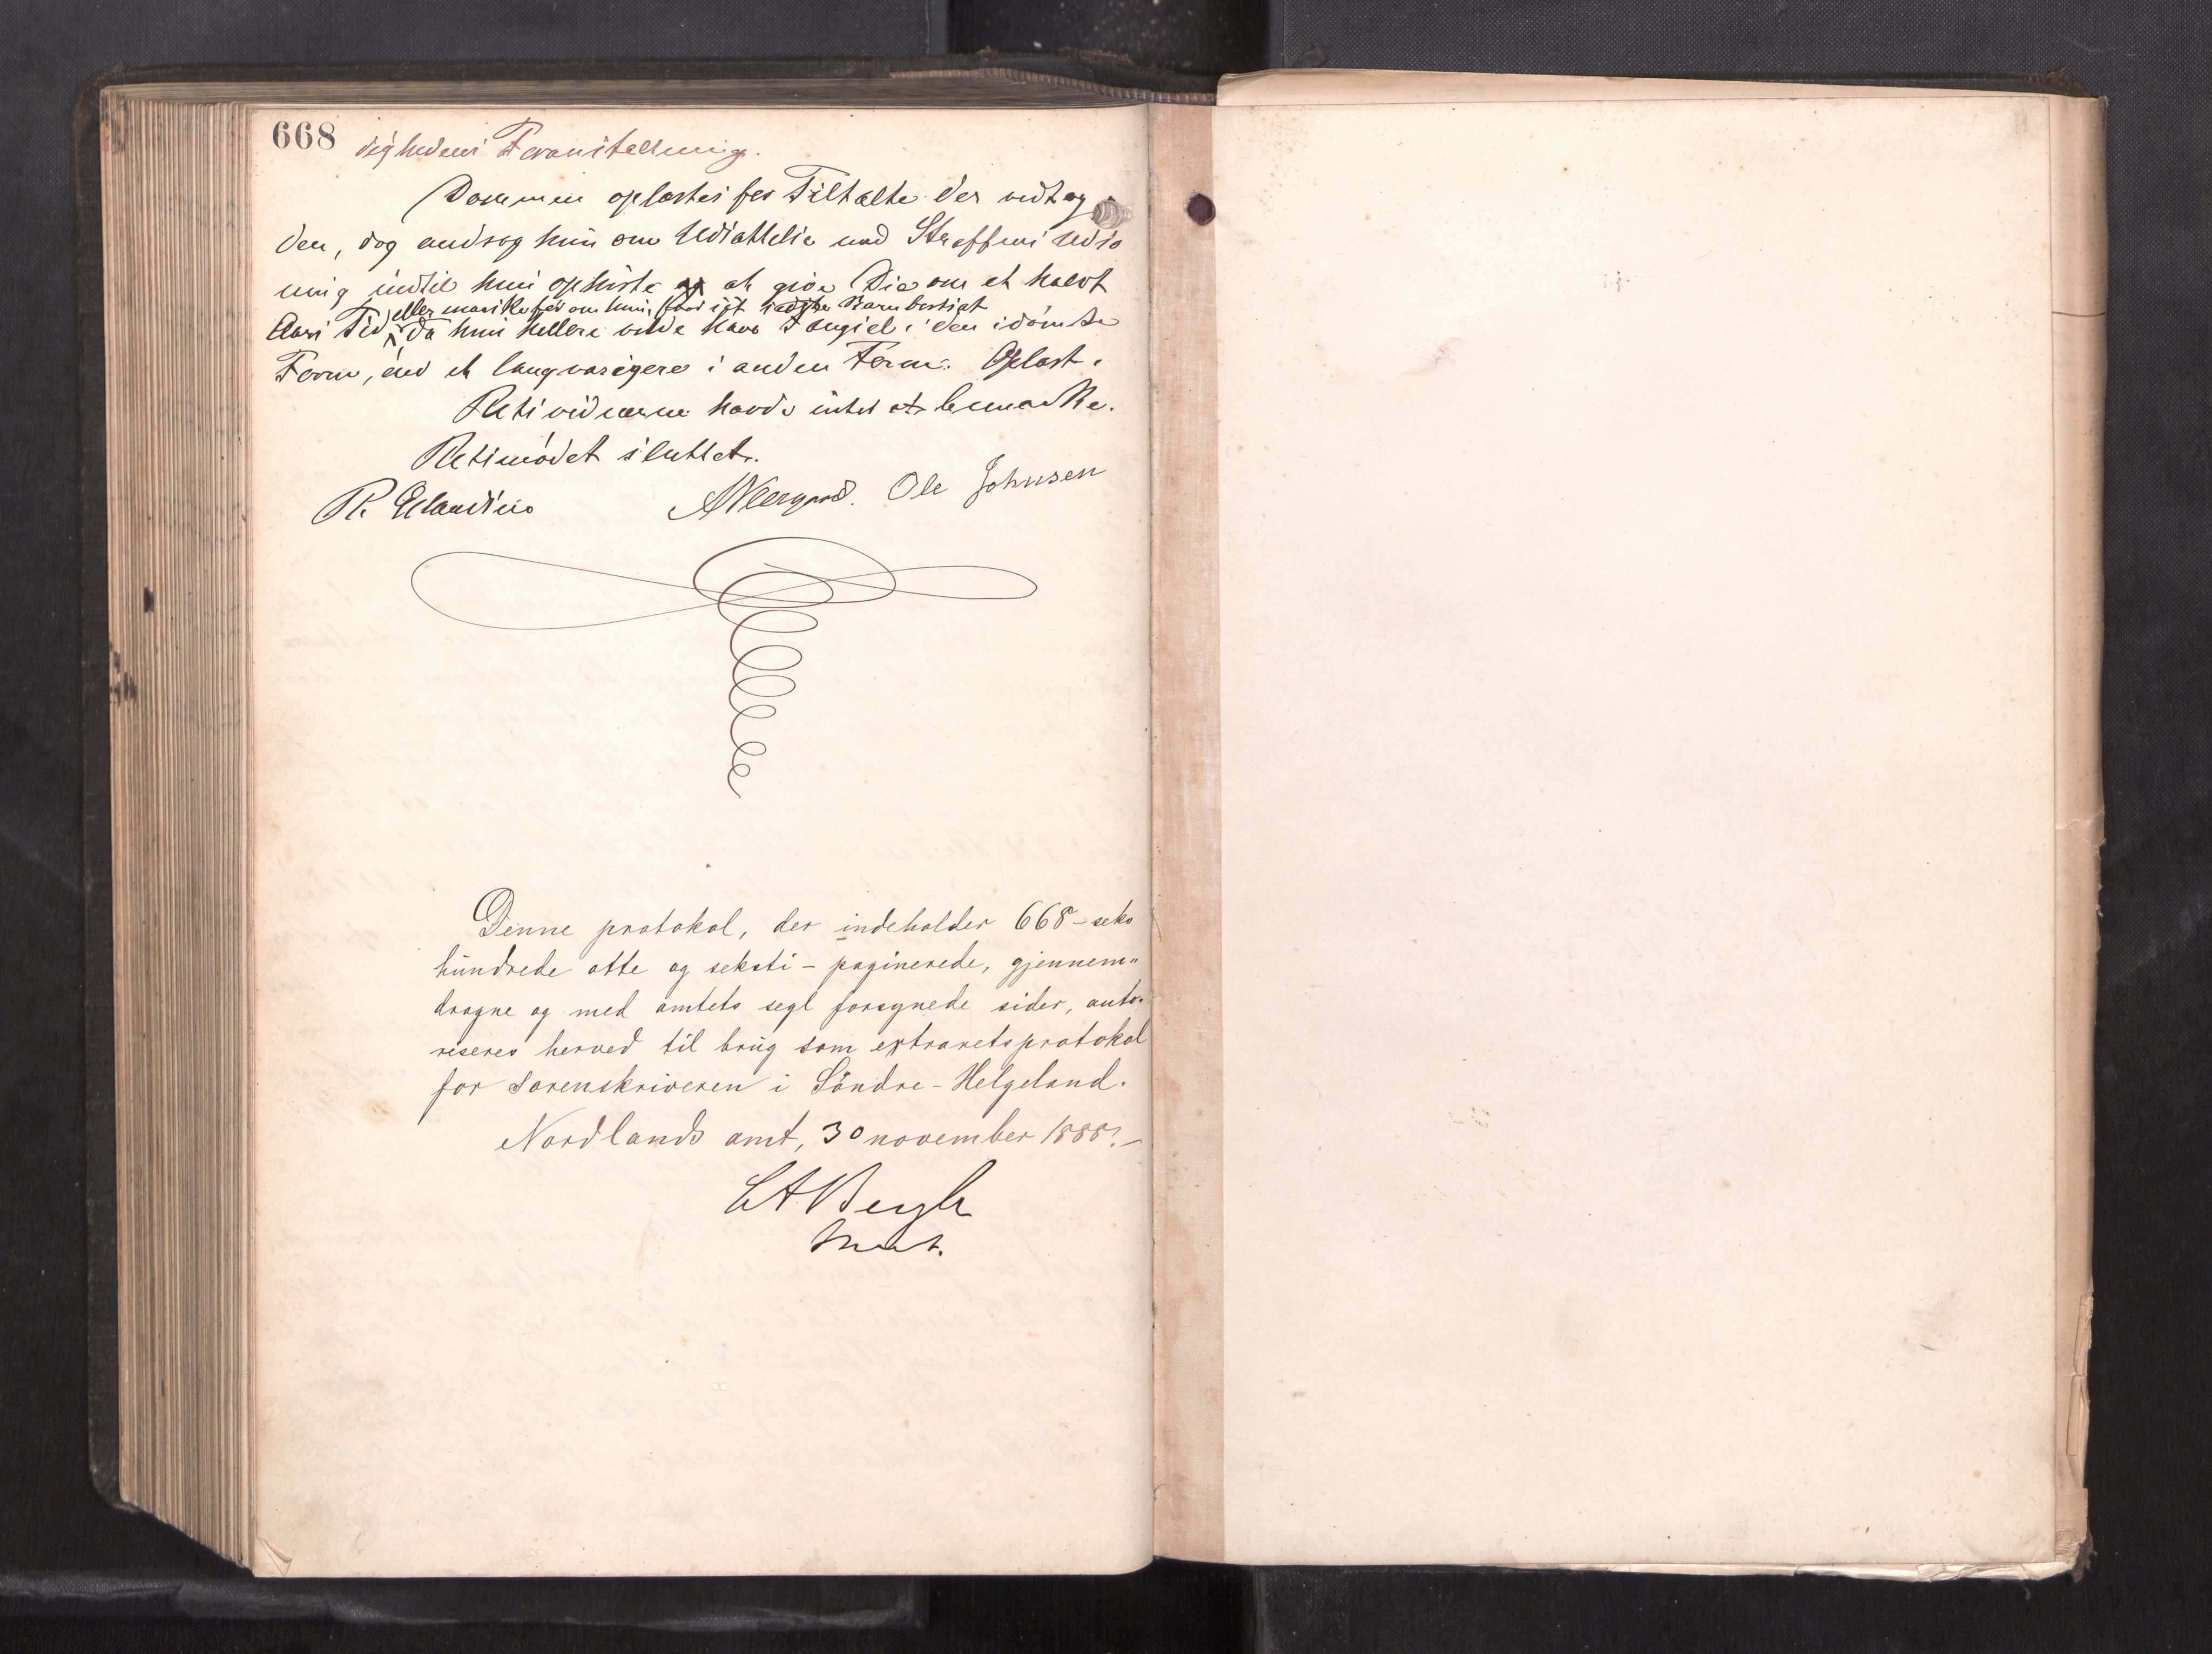 668
dighedens Foranstaltning.
Dommen oplæstes for Tiltalte der vedtog
den, dog androg hun om Udsættelse med Straffens Udso
ning indtil hun ophørte at give Die om et halvt
eller maaske før om hun faar sit Barn bortsat
Aars Tid, da hun hellere vilde have Fængsel i den idømte
Form, end et langvarigere i anden Form. Oplæst.
Retsvidnerne havde intet at bemærke.
Retsmødet sluttet.
Ole Johnsen
Denne protokol, der indeholder 668 - seks
hundrede otte og seksti - paginerede, gjennem"
dragne og med amtets segl forsynede sider, auto"
riseres herved til brug som extraretsprotokol
for sorenskriveren i Söndre-Helgeland.
Nordlands amt, 30 november 1888. -